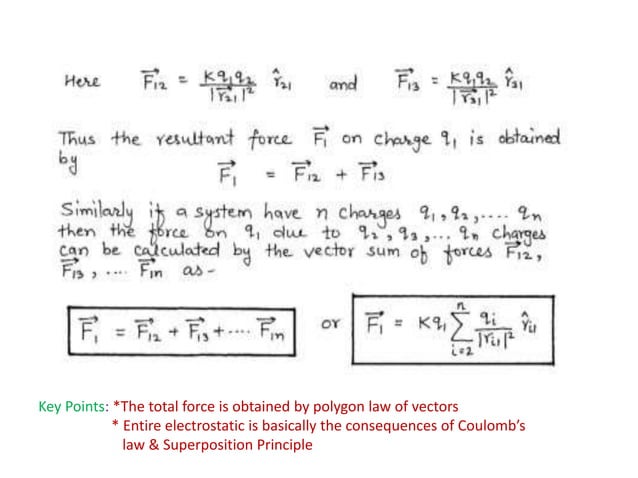 Here F⃗₁₂ = Kq₁q₂/|r⃗₂₁|² r̂₂₁ and F⃗₁₃ = Kq₁q₂/|r⃗₃₁|² r̂₃₁
Thus the resultant force F⃗₁ on charge q₁ is obtained
by
F⃗₁ = F⃗₁₂ + F⃗₁₃
Similarly if a system have n charges q₁, q₂, .... qₙ
then the force on q₁ due to q₂, q₃, ... qₙ charges
can be calculated by the vector sum of forces F⃗₁₂,
F⃗₁₃, .... F⃗₁ₙ as-
F⃗₁ = F⃗₁₂ + F⃗₁₃ + .... F⃗₁ₙ or F⃗₁ = Kq₁ ∑ⁿᵢ₌₂ qᵢ/|rᵢ₁|² r̂ᵢ₁
Key Points: *The total force is obtained by polygon law of vectors
* Entire electrostatic is basically the consequences of Coulomb’s
law & Superposition Principle